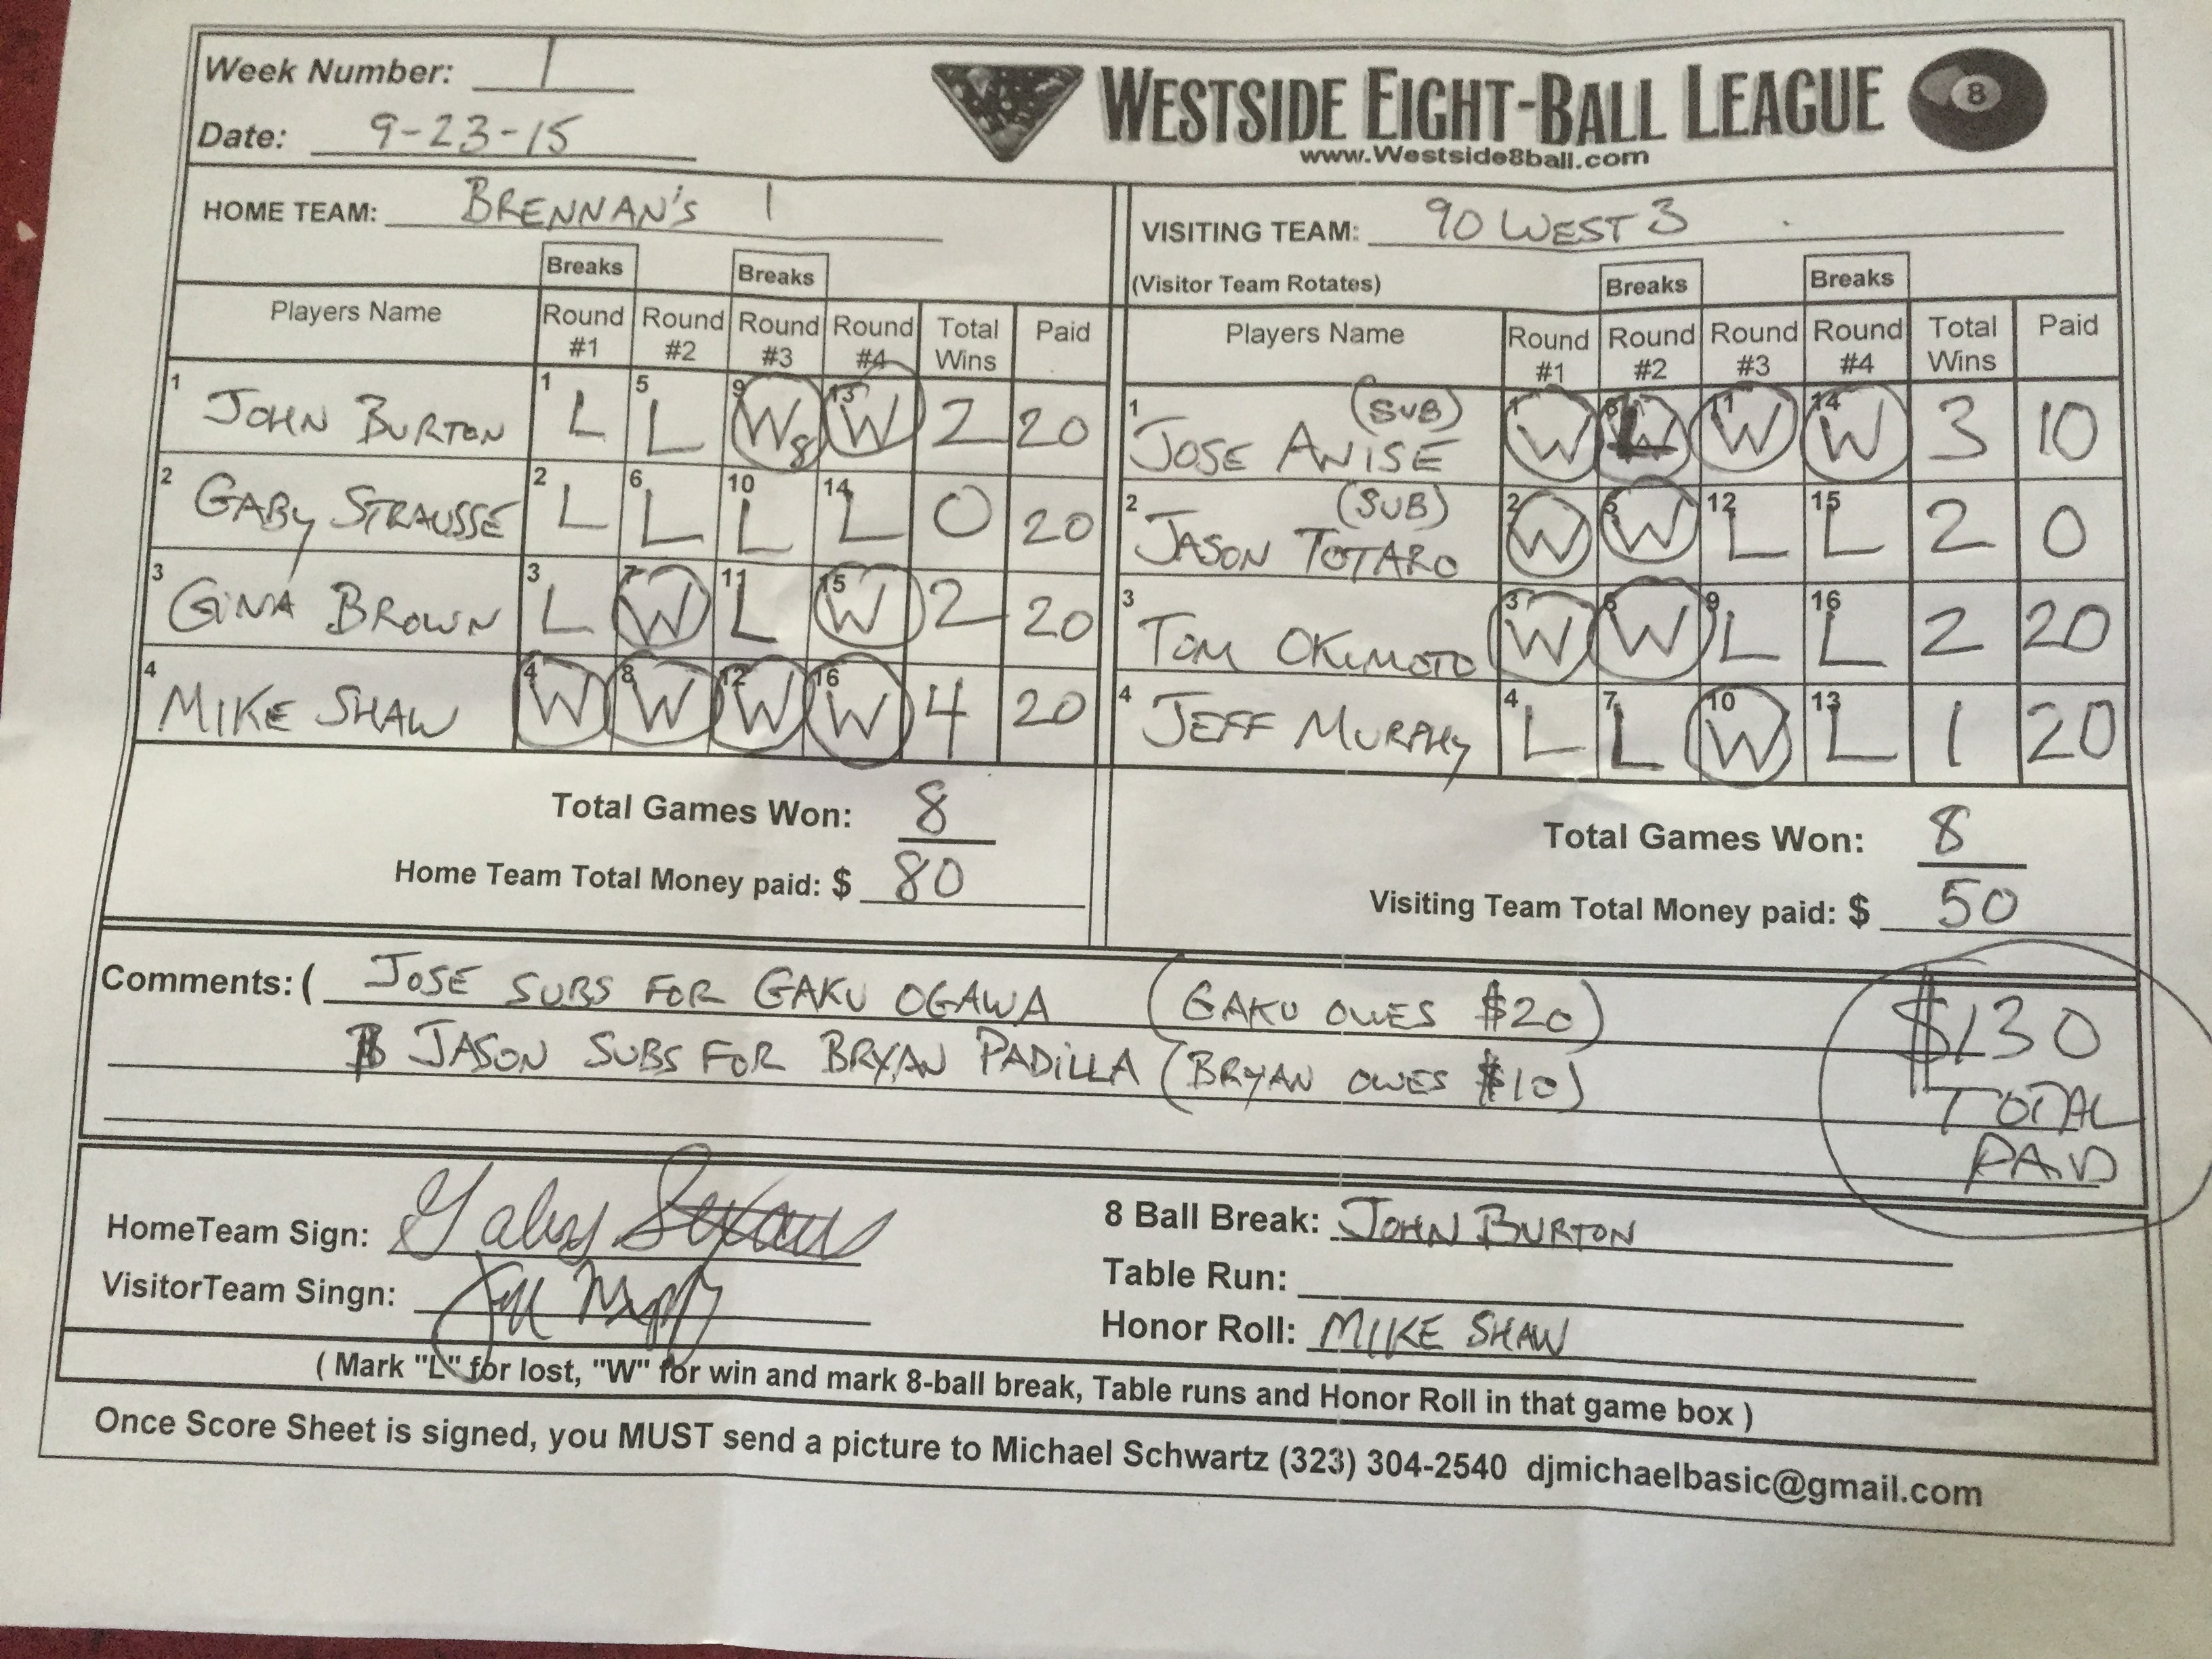 Week Number: 1
WESTSIDE EIGHT-BALL LEAGUE 8
www.Westside8ball.com
Date: 9-23-15
HOME TEAM: BRENNAN'S 1
VISITING TEAM: 90 WEST 3
Breaks Breaks
(Visitor Team Rotates) Breaks Breaks
Players Name Round #1 Round #2 Round #3 Round #4 Total Wins Paid
1 JOHN BURTON 1 L 5 L 9 W8 13 W 2 20
2 GABY STRAUSSE 2 L 6 L 10 L 14 L 0 20
3 GINA BROWN 3 L 7 W 11 L 15 W 2 20
4 MIKE SHAW 4 W 8 W 12 W 16 W 4 20
Total Games Won: 8
Home Team Total Money paid: $ 80
Players Name Round #1 Round #2 Round #3 Round #4 Total Wins Paid
1 JOSE ANISE (SUB) 1 W L 11 W 14 W 3 10
2 JASON TOTARO (SUB) 2 W W 12 L 15 L 2 0
3 TOM OKIMOTO 3 W W 9 L 16 L 2 20
4 JEFF MURPHY 4 L 7 L 10 W 13 L 1 20
Total Games Won: 8
Visiting Team Total Money paid: $ 50
Comments: ( JOSE SUBS FOR GAKU OGAWA (GAKU OWES $20)
JASON SUBS FOR BRYAN PADILLA (BRYAN OWES $10)
$130
TOTAL
PAID
HomeTeam Sign: Gaby
VisitorTeam Singn: Jeff Murphy
8 Ball Break: JOHN BURTON
Table Run:
Honor Roll: MIKE SHAW
( Mark "L" for lost, "W" for win and mark 8-ball break, Table runs and Honor Roll in that game box )
Once Score Sheet is signed, you MUST send a picture to Michael Schwartz (323) 304-2540 djmichaelbasic@gmail.com